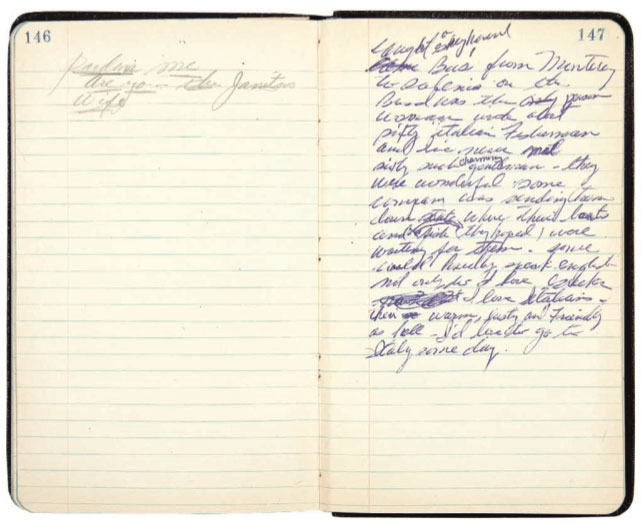 146
Pardon me
Are you the Janitors
Wife
147
caught a Greyhound
Bus from Monterey
to Salenis on the
Bus I was the only
woman with about
sixty italian Fisherman
and I've never met
sixty such charming gentleman - they
were wonderful. Some
company was sending them
down state where their boats
and (they hoped) were
waiting for them. Some
could hardly speak english
not only do I love Greeks
I love Italians.
they're warm, lusty and Friendly
as hell - I'd love to go to
Italy some day.